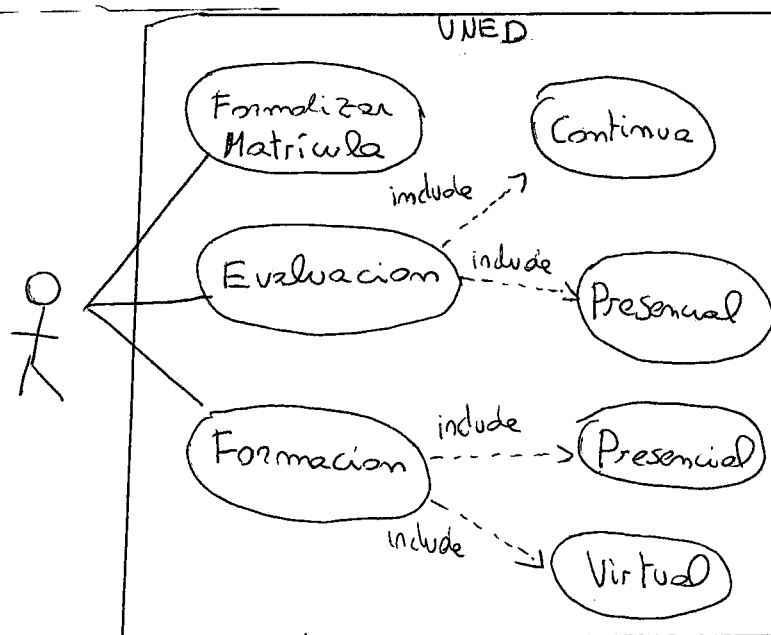 UNED
Formalizar
Matrícula
Continua
include
Evaluacion
include
Presencial
Formacion
include
Presencial
include
Virtual